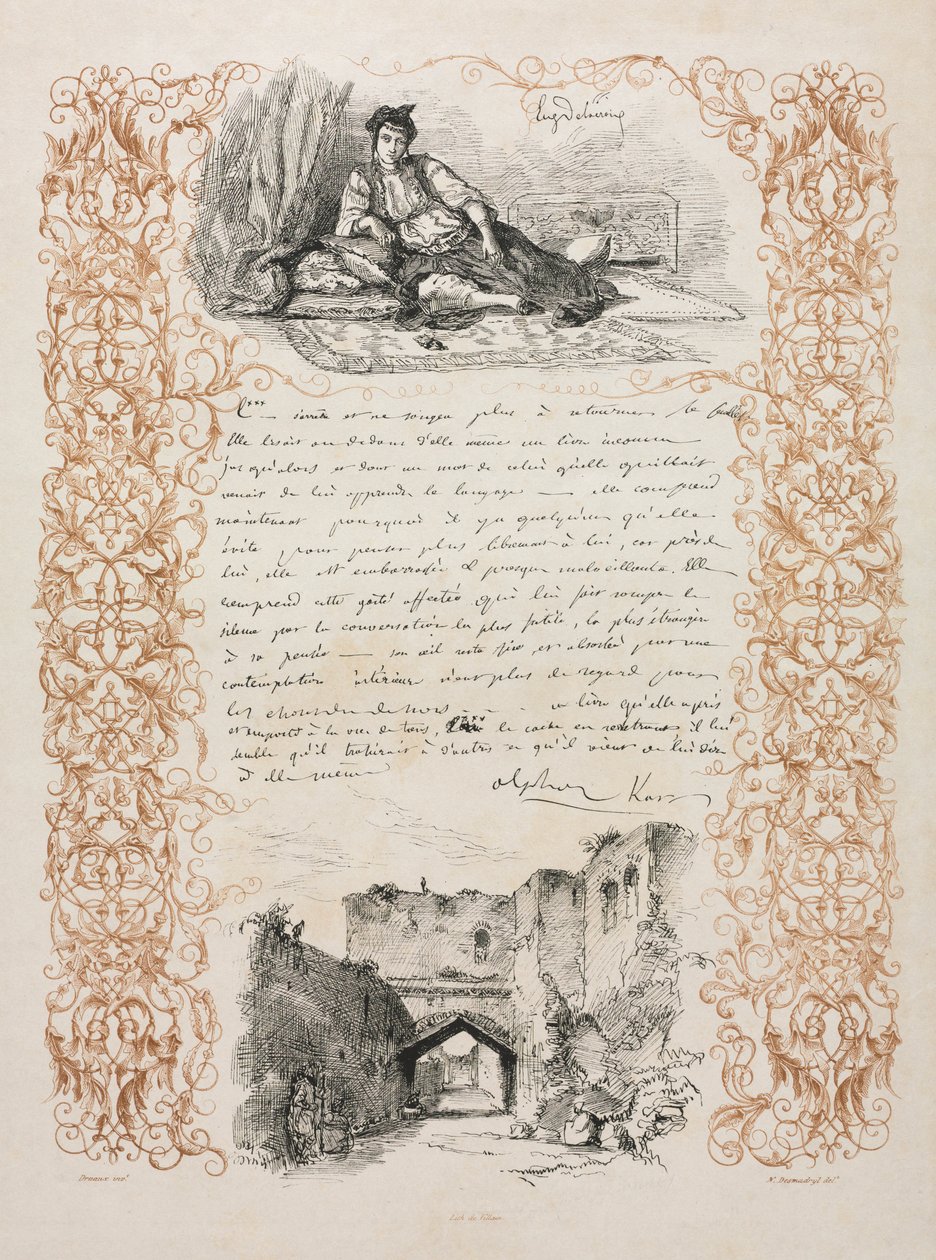 Eug Delacroix
C*** s'arrêta et ne songea plus à retourner le feuillet
Elle lisait au dedans d'elle même un livre inconnu
jusqu'alors et dont un mot de celui qu'elle
venait de lui apprendre le langage — elle comprend
maintenant pourquoi il y a quelqu'un qu'elle
évite pour penser plus librement à lui, car près de
lui, elle est embarrassée & presque malveillante. Elle
comprend cette gaité affectée qui lui fait rompre le
silence par la conversation la plus futile, la plus étrangère
à sa pensée — son œil reste fixe et absorbé par une
contemplation intérieure n'ayant plus de regard pour
les choses du dehors - - - ce livre qu'elle a pris
et emporté à la vue de tous, C*** le cache en rentrant il lui
semble qu'il trahirait à d'autres ce qu'il vient de lui dire
à elle même
Alphonse Karr
Drnaux inv.t
N. Desmadryl del.t
Lith de Villain